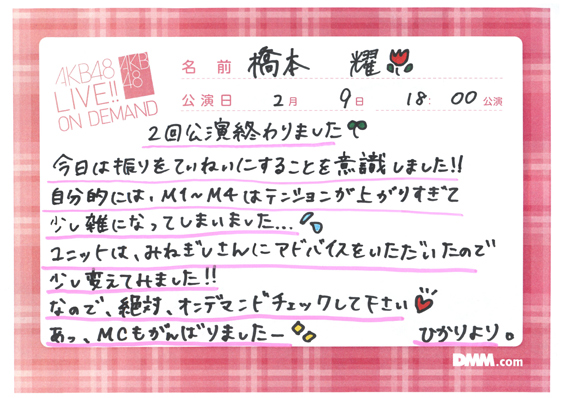 AKB48
LIVE!!
ON DEMAND
AKB
48
名 前 橋本 耀
公演日 2月 9日 18:00公演
2回公演終わりました
今日は振りをていねいにすることを意識しました!!
自分的には、M1~M4はテンションが上がりすぎて
少し雑になってしまいました...
ユニットは、みねぎしさんにアドバイスをいただいたので
少し変えてみました!!
なので、絶対、オンデマンドチェックして下さい
あっ、MCもがんばりましたー
ひかりより。
DMM.com